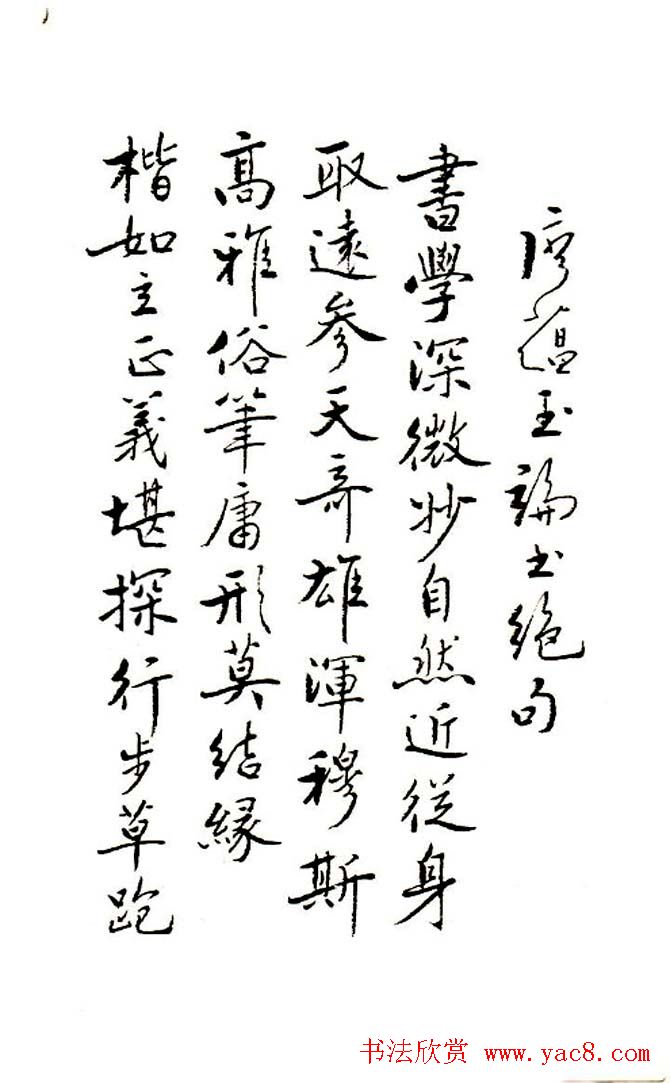 廖蕴玉論书絶句
書學深微妙自然近從身
取遠參天奇雄渾穆斯
高雅俗筆庸形莫结緣
楷如立正義堪探行步草跑
书法欣赏 www.yac8.com